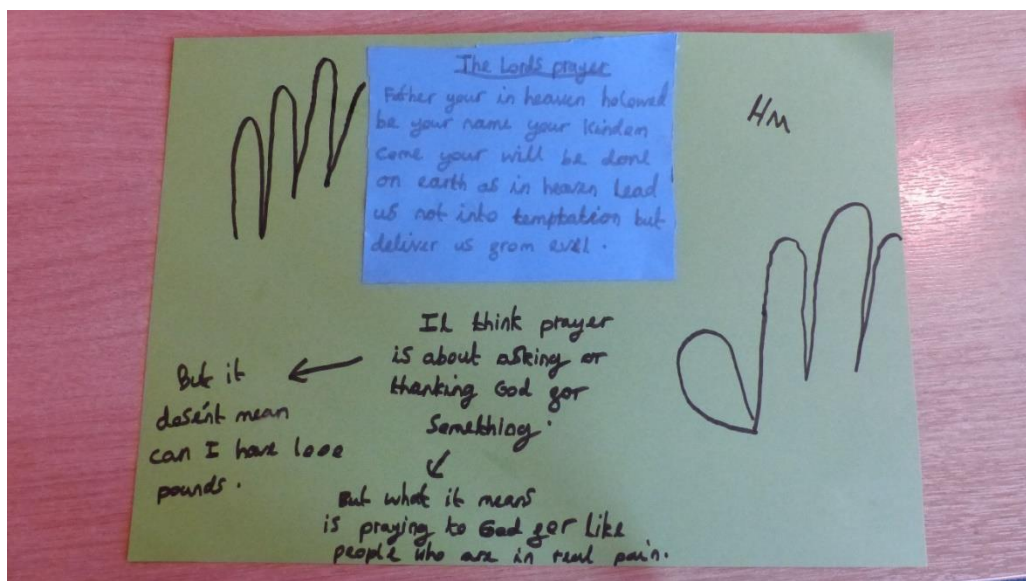 The Lords prayer
Father your in heaven holowed
be your name your kindem
come your will be done
on earth as in heaven Lead
us not into temptation but
deliver us from evel.
HM
I think prayer
is about asking or
thanking God for
Something.
But it
dosen't mean
can I have 1000
pounds.
But what it means
is praying to God for like
people who are in real pain.